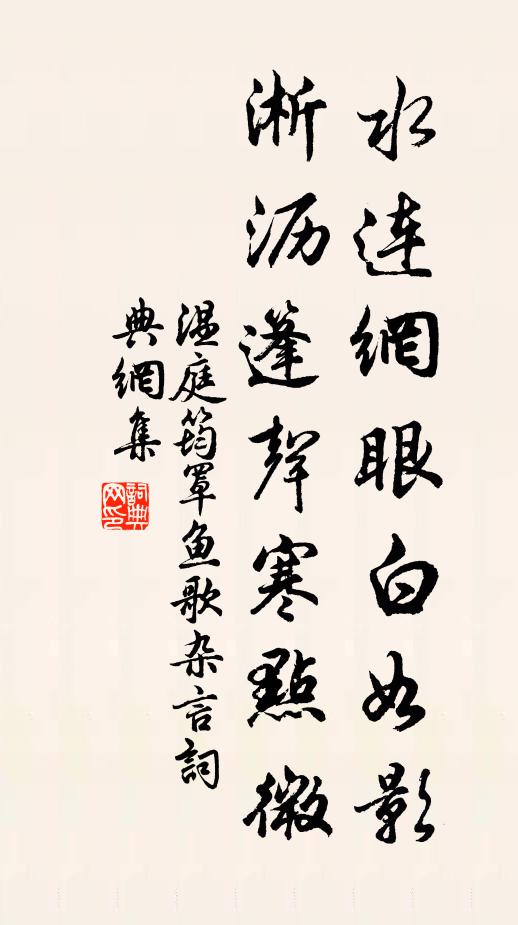 水連網眼白如影
淅沥篷聲寒點微
温庭筠罩鱼歌杂言詞
典網集
詞典网印